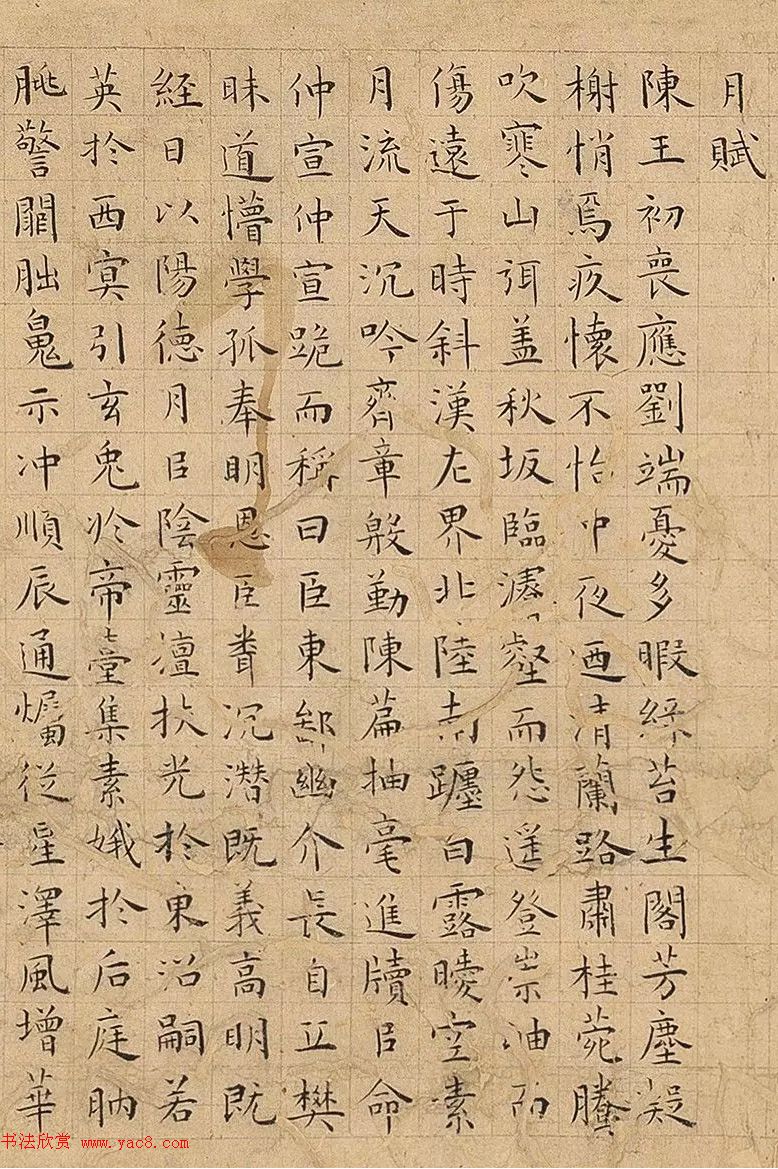 月賦
陳王初喪應劉端憂多暇綠苔生閣芳塵凝
榭悄焉疚懷不怡中夜迺清蘭路肅桂菀騰
吹寒山弭盖秋坂臨濬壑而怨遥登崇岫而
傷遠于時斜漢左界北陸南躔白露曖空素
月流天沉吟齊章殷勤陳篇抽毫進牘以命
仲宣仲宣跪而稱曰臣東鄙幽介長自丘樊
昧道懵學孤奉明恩臣聞沉潜既義高明既
経日以陽徳月以陰靈擅扶光於東沼嗣若
英於西冥引玄兔於帝臺集素娥於后庭朒
朓警闕朏魄示冲順辰通燭從星澤風增華
书法欣赏 www.yac8.com